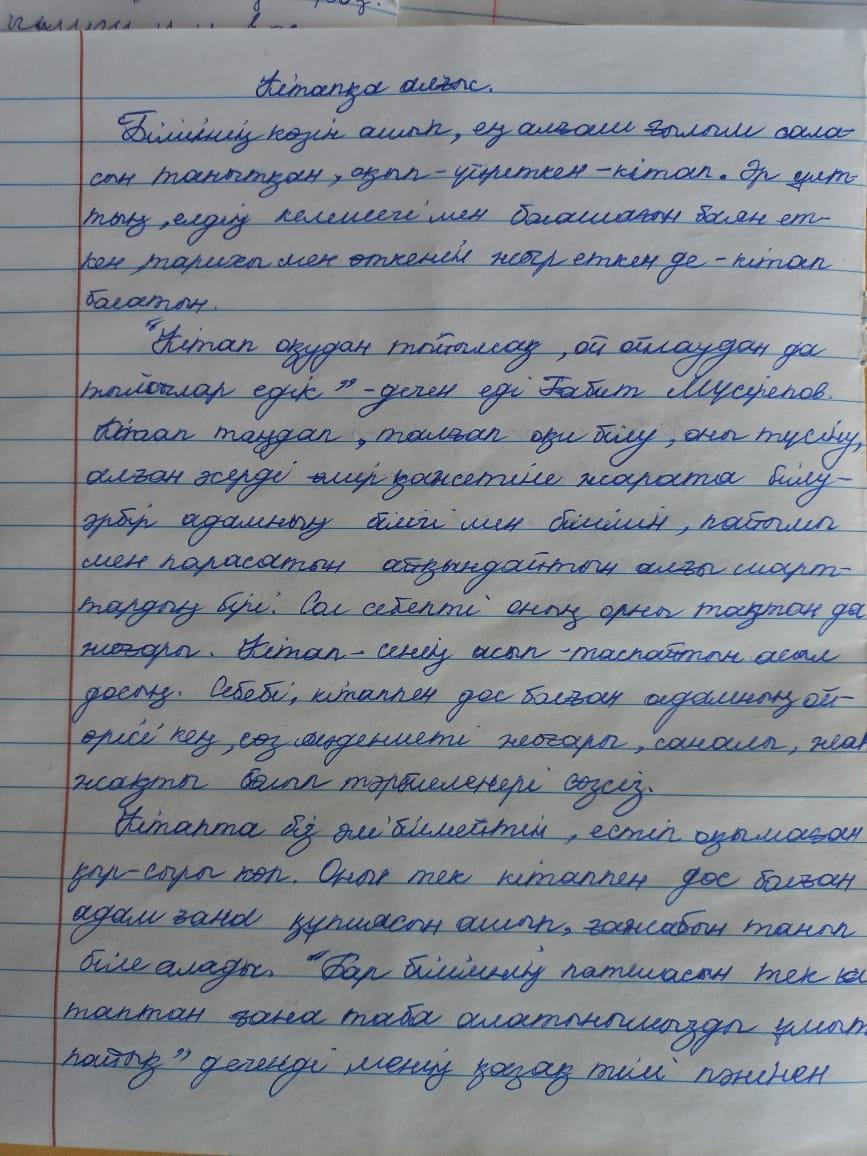 Кітапқа алғыс.
Білімнің көзін ашып, ең алғаш ғылым сала-
сын танытқан, оқып-үйреткен - кітап. Әр ұлт-
тың, елдің келешегі мен болашағын баян ет-
кен, тарихы мен өткенін жыр еткен де - кітап
болатын.
"Кітап оқудан тойылсақ, ой ойлаудан да
тыйылар едік" - деген еді Ғабит Мүсірепов.
Кітап таңдап, талғап оқи білу, оны түсіну,
алған әсерді өмір қажетіне жарата білу-
әрбір адамның білігі мен білімін, пайымы
мен парасатын айқындайтын алғы шарт-
тардың бірі. Сол себепті оның орны тақтан да
жоғары. Кітап - сенің асып-таспайтын асыл
досың. Себебі, кітаппен дос болған адамның ой-
өрісі кең, сөз мәдениеті жоғары, саналы, жан
жақты болып тәрбиеленері сөзсіз.
Кітапта біз әлі білмейтін, естіп оқымаған
қыр-сыры көп. Оның тек кітаппен дос болған
адам ғана құпиясын ашып, ғажабын танып
біле алады. "Бар білімнің патшасын тек кі
таптан ғана таба алатынымызды ұмыт
пайық" дегенді менің қазақ тілі пәнінен